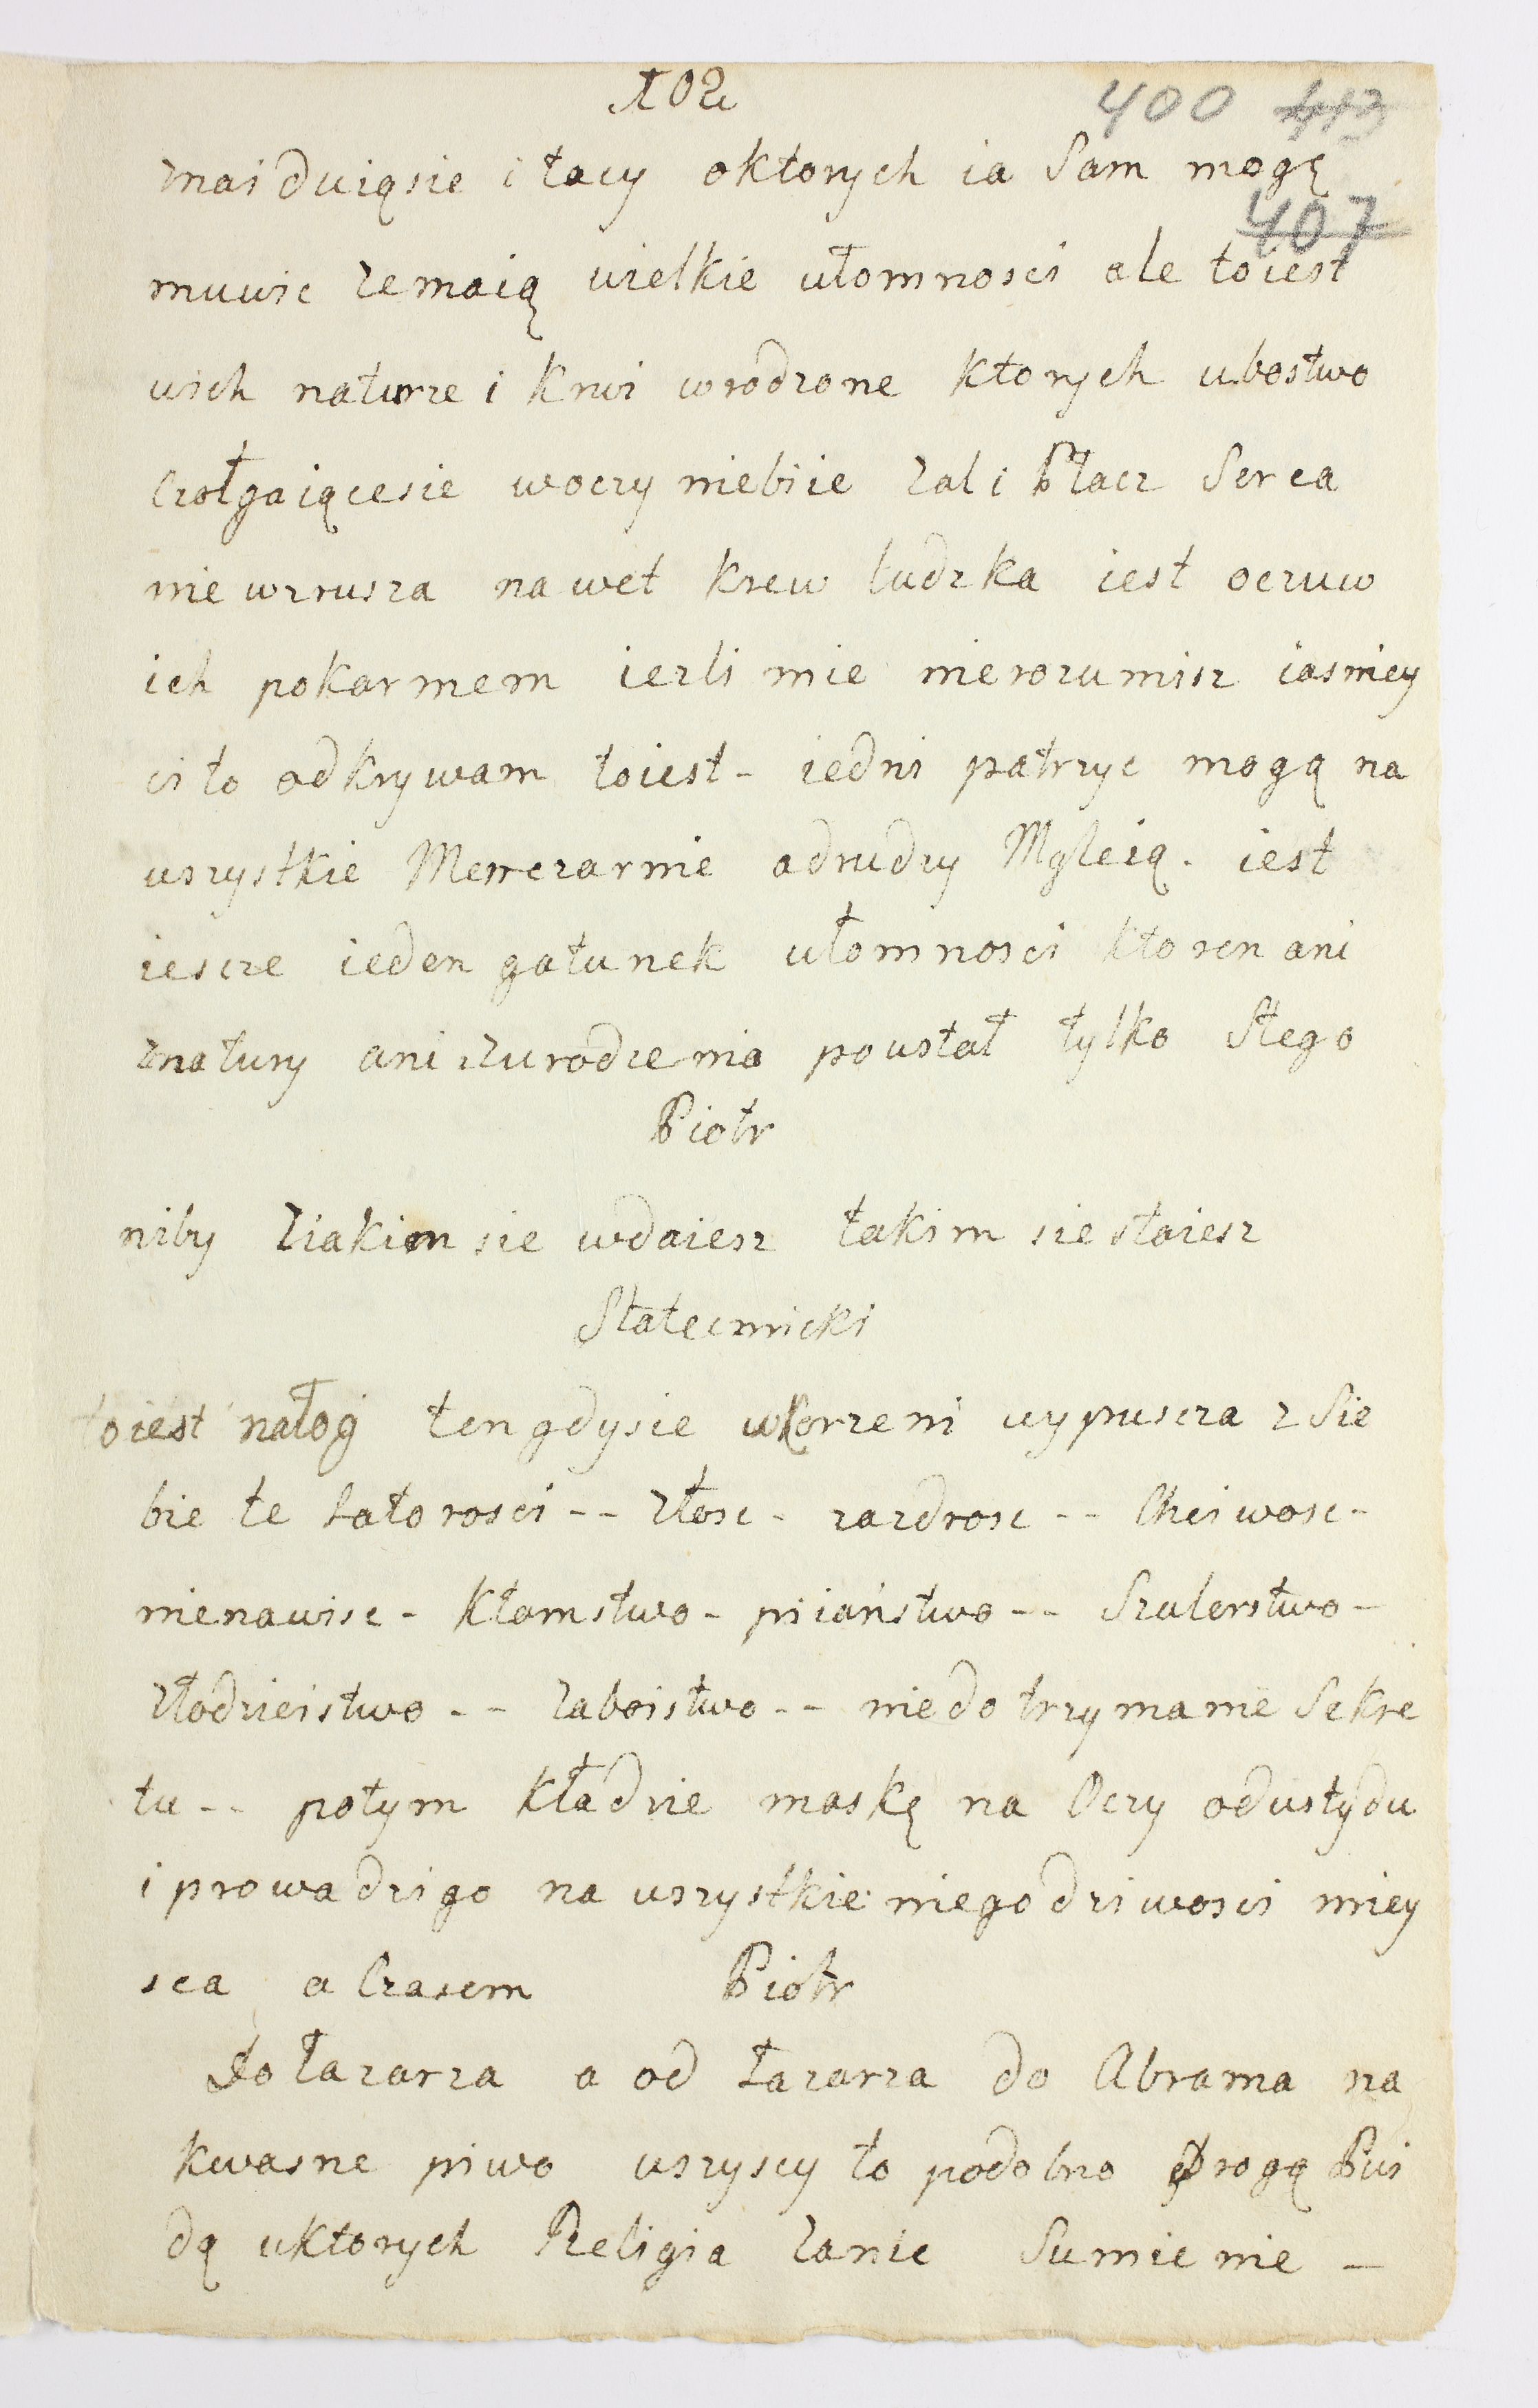 102
400 413
znaiduiąsie i tacy oktorych ia Sam mogę
407
muwic zemaią wielkie ułomnosci ale toiest
wich naturze i Krwi wrodzone ktorych ubostwo
Czołgaiącesie woczy niebiie zal i Płacz Serca
nie wzrusza nawet krew ludzka iest oczuw
ich pokarmem iezli mie nierozumisz iasniey
ci to odkrywam toiest - iedni patrzyc mogą na
wszystkie Menczarnie adrudzy Mgleią. iest
iescze ieden gatunek ułomnosci ktoren ani
znatury ani zurodzenia powstał tylko Stego
Piotr
niby ziakim sie wdaiesz takim sie staiesz
Statecznicki
toiest nałog ten gdysie wkorzeni wypuscza z Sie
bie te latorosci -- złosc - zazdrosc -- Chciwosc -
nienawisc - kłamstwo - piiaństwo -- Szulerstwo -
złodzieistwo -- zaboistwo -- niedotrzymanie Sekre
tu -- potym kładzie maskę na Oczy odwstydu
i prowadzi go na wszystkie niegodziwosci miey
sca a Czasem Piotr
do łazarza a od łazarza do Abrama na
kwasne piwo wszyscy to podobno drogą Pui
dą uktorych Religia zanic Sumienie -